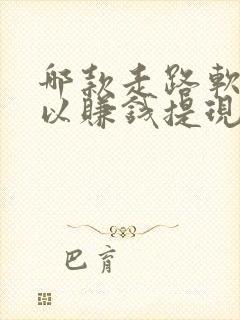 哪款走路軟
以賺錢提現
巴育